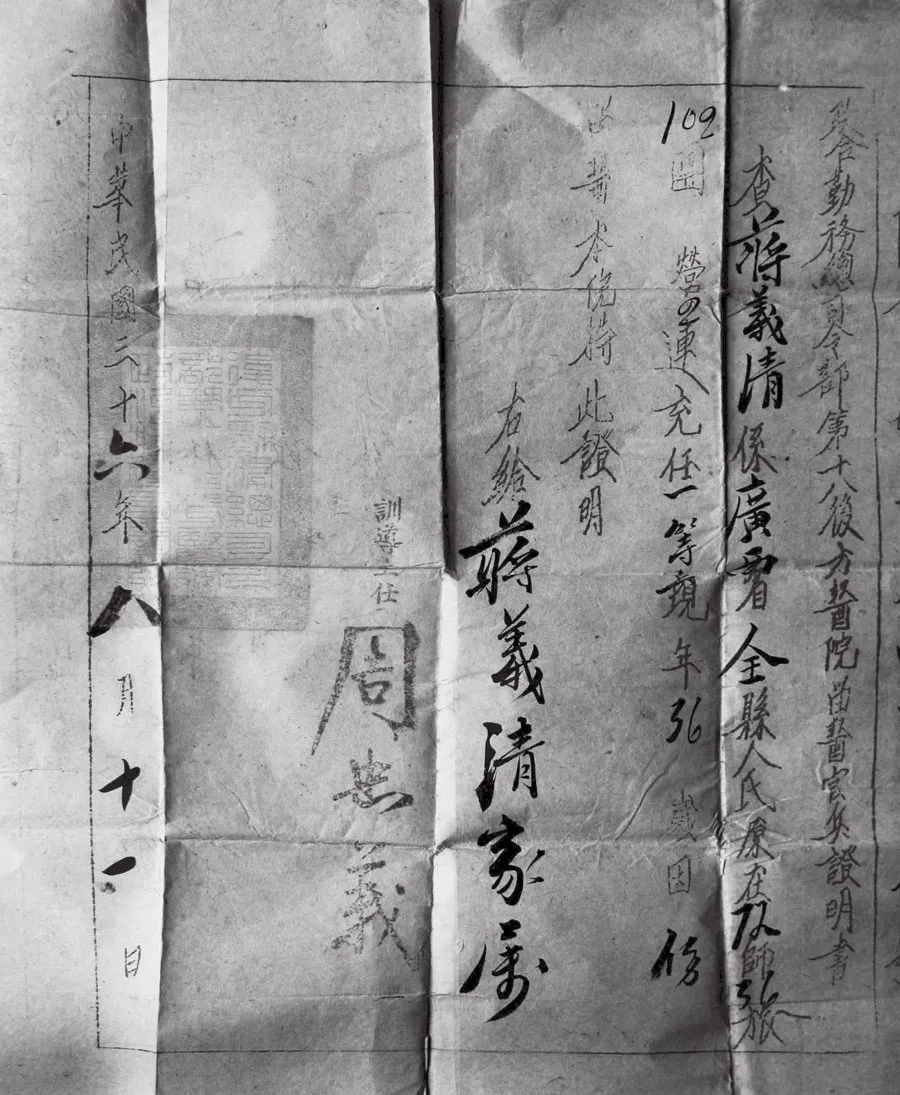 聯合勤務總司令部第十八後方醫院留醫官兵證明書
查蔣義清係廣西省全縣人氏原在72師36旅
109團 營 連充任一等兵現年36歲因傷
留醫本院特此證明
右給蔣義清家屬
訓導主任 周忠義
中華民國三十六年八月十一日